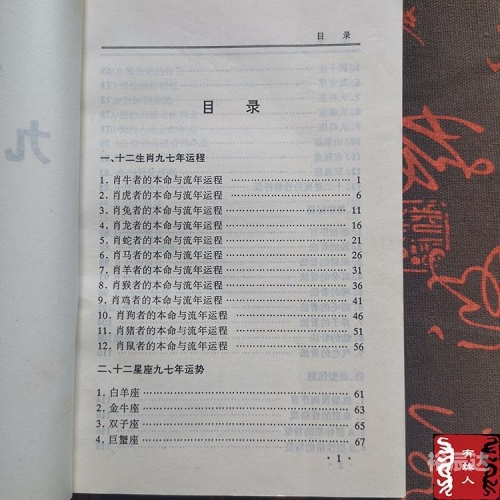 目 录
目 录
一、十二生肖九七年运程
1. 肖牛者的本命与流年运程 1
2. 肖虎者的本命与流年运程 6
3. 肖兔者的本命与流年运程 11
4. 肖龙者的本命与流年运程 16
5. 肖蛇者的本命与流年运程 21
6. 肖马者的本命与流年运程 26
7. 肖羊者的本命与流年运程 31
8. 肖猴者的本命与流年运程 36
9. 肖鸡者的本命与流年运程 41
10. 肖狗者的本命与流年运程 46
11. 肖猪者的本命与流年运程 51
12. 肖鼠者的本命与流年运程 56
二、十二星座九七年运势
1. 白羊座 61
2. 金牛座 63
3. 双子座 65
4. 巨蟹座 67
· 1 ·
九
有缘人